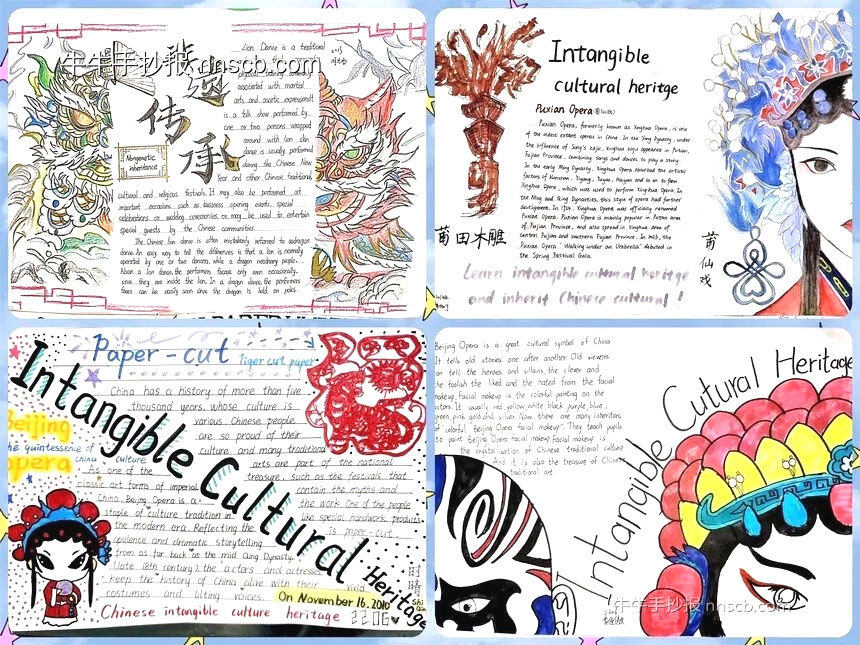 牛牛手抄报 nnscb.com
非遗
传
承
Nongenetic
inheritance
Lion Dance is a traditional
associated with martial
arts and
is a talk show performed by
one or two persons wrapped
around with lion skin
dance is usually performed
during the Chinese New
Year and other Chinese traditional
cultural and religious festivals. It may also be performed at
important occasions such as business opening events, special
celebrations or wedding ceremonies or may be used to entertain
special guests by the Chinese communities.
The Chinese lion dance is often mistakenly referred to as dragon
dance An easy way to tell the differences is that a lion is normally
operated by one or two dancers, while a dragon needs many people.
lion dance the performers' faces are only seen occasionally,
since they are inside the lion. In a dragon dance the performers
faces can be easily seen since the dragon is held on poles.
Intangible
cultural heritge
Puxian Opera
Puxian Opera, formerly known as Xinghua Opera, is one
of the oldest extant operas in China. In the Song Dynasty, under
the influence of Song's zaju, Xinghua zaju appeared in Putian,
Fujian Province, combining songs and dances to play a story.
In the early Ming Dynasty, Xinghua Opera absorbed the artistic
factors of Kunshan, Yiyang, Yuyao, Haiyan and so on to form
Xinghua Opera, which was used to perform Xinghua Opera. In
the Ming and Qing Dynasties, this style of opera had further
development. In 1954, Xinghua Opera was officially renamed
Puxian Opera. Puxian Opera is mainly popular in Putian area
of Fujian Province, and also spread in Xinghua area of
central Fujian and southern Fujian Province. In 2023, the
Puxian Opera "Walking under an Umbrella" debuted in
the Spring Festival Gala.
莆田木雕
莆
仙
戏
Learn intangible cultural heritge
and inherit Chinese cultural !
Paper-cut
Tiger cut paper
Intangible Cultural Heritage
China has a history of more than five
thousand years, whose culture is
various. Chinese people
are so proud of their
culture and many traditional
arts are part of the national
treasure, such as the festivals that
contain the myths and
the work. One of the people
like special handwork products
is paper-cut.
Beijing
the quintessence of China culture
opera
As one of the
classic art forms of imperial
China, Beijing Opera is a
staple of culture tradition in
the modern era. Reflecting the
opulence and dramatic storytelling
from as far back as the mid Qing Dynasty
(late 18th century), the actors and actresses
keep the history of China alive with their vivid
costumes and lilting voices.
On November 16, 2010
Chinese intangible culture heritage
Beijing Opera is a great cultural symbol of China
It tells old stories one after another. Old viewers
can tell the heroes and villains, the clever and
the foolish the liked and the hated from the facial
makeup. Facial makeup is the colorful painting on the
actors. It usually red, yellow, white, black, purple, blue,
green, pink, gold and silver. Now there are many inheritors
of colorful Beijing Opera facial makeup. They teach pupils
to paint Beijing Opera facial makeup. Facial makeup is
the crystallization of Chinese traditional culture
And it is also the treasure of Chinese
traditional art.
Intangible Cutural Heritage
牛牛手抄报 nnscb.com